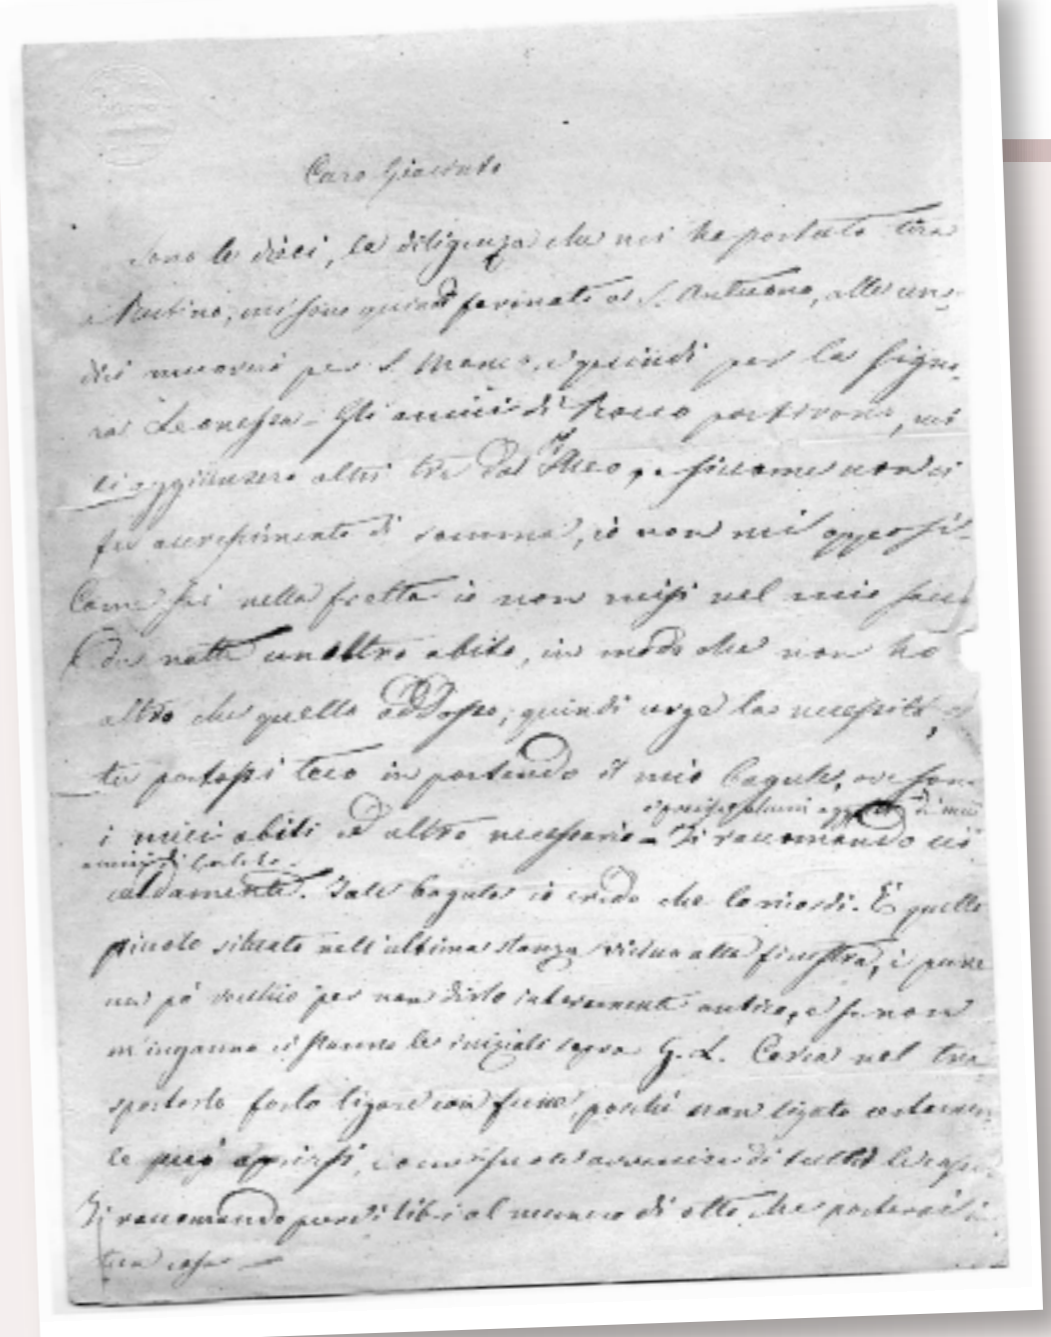 Caro Giacinto
sono le dieci, la diligenza che mi ha portato tira
a mi sono quindi fermato a S. Antuono, alle un-
dici muoverò per S. Marco, e quindi per la Signo-
ra Leonessa - Gli amici di Rocco partirono, ma
si aggiunsero altri tre del e siccome non ci
fu accrescimento di somma, io non mi opposi -
Come sai nella fretta io non misi nel mio sacco
da notte un altro abito, in modo che non ho
altro che quello addosso; quindi urge la necessità,
tu portassi teco in partendo il mio bagule, ove sono
alcuni di mia
i miei abiti ed altro necessario - Ti raccomando ciò
caldamente. Tale bagule io credo che lo ricordi. È quello
piccolo situato nell'ultima stanza vicino alla finestra, è pure
un pò vecchio per non dirlo interamente antico, e se non
m'inganno ci stanno le iniziali sopra G. L. Cerca nel tra-
sportarlo farlo ligare con fune, poiché non ligato certamen-
te può aprirsi, come suole avvenire di tutte le
Ti raccomando pure i libri al numero di otto che porterai in
tua casa -